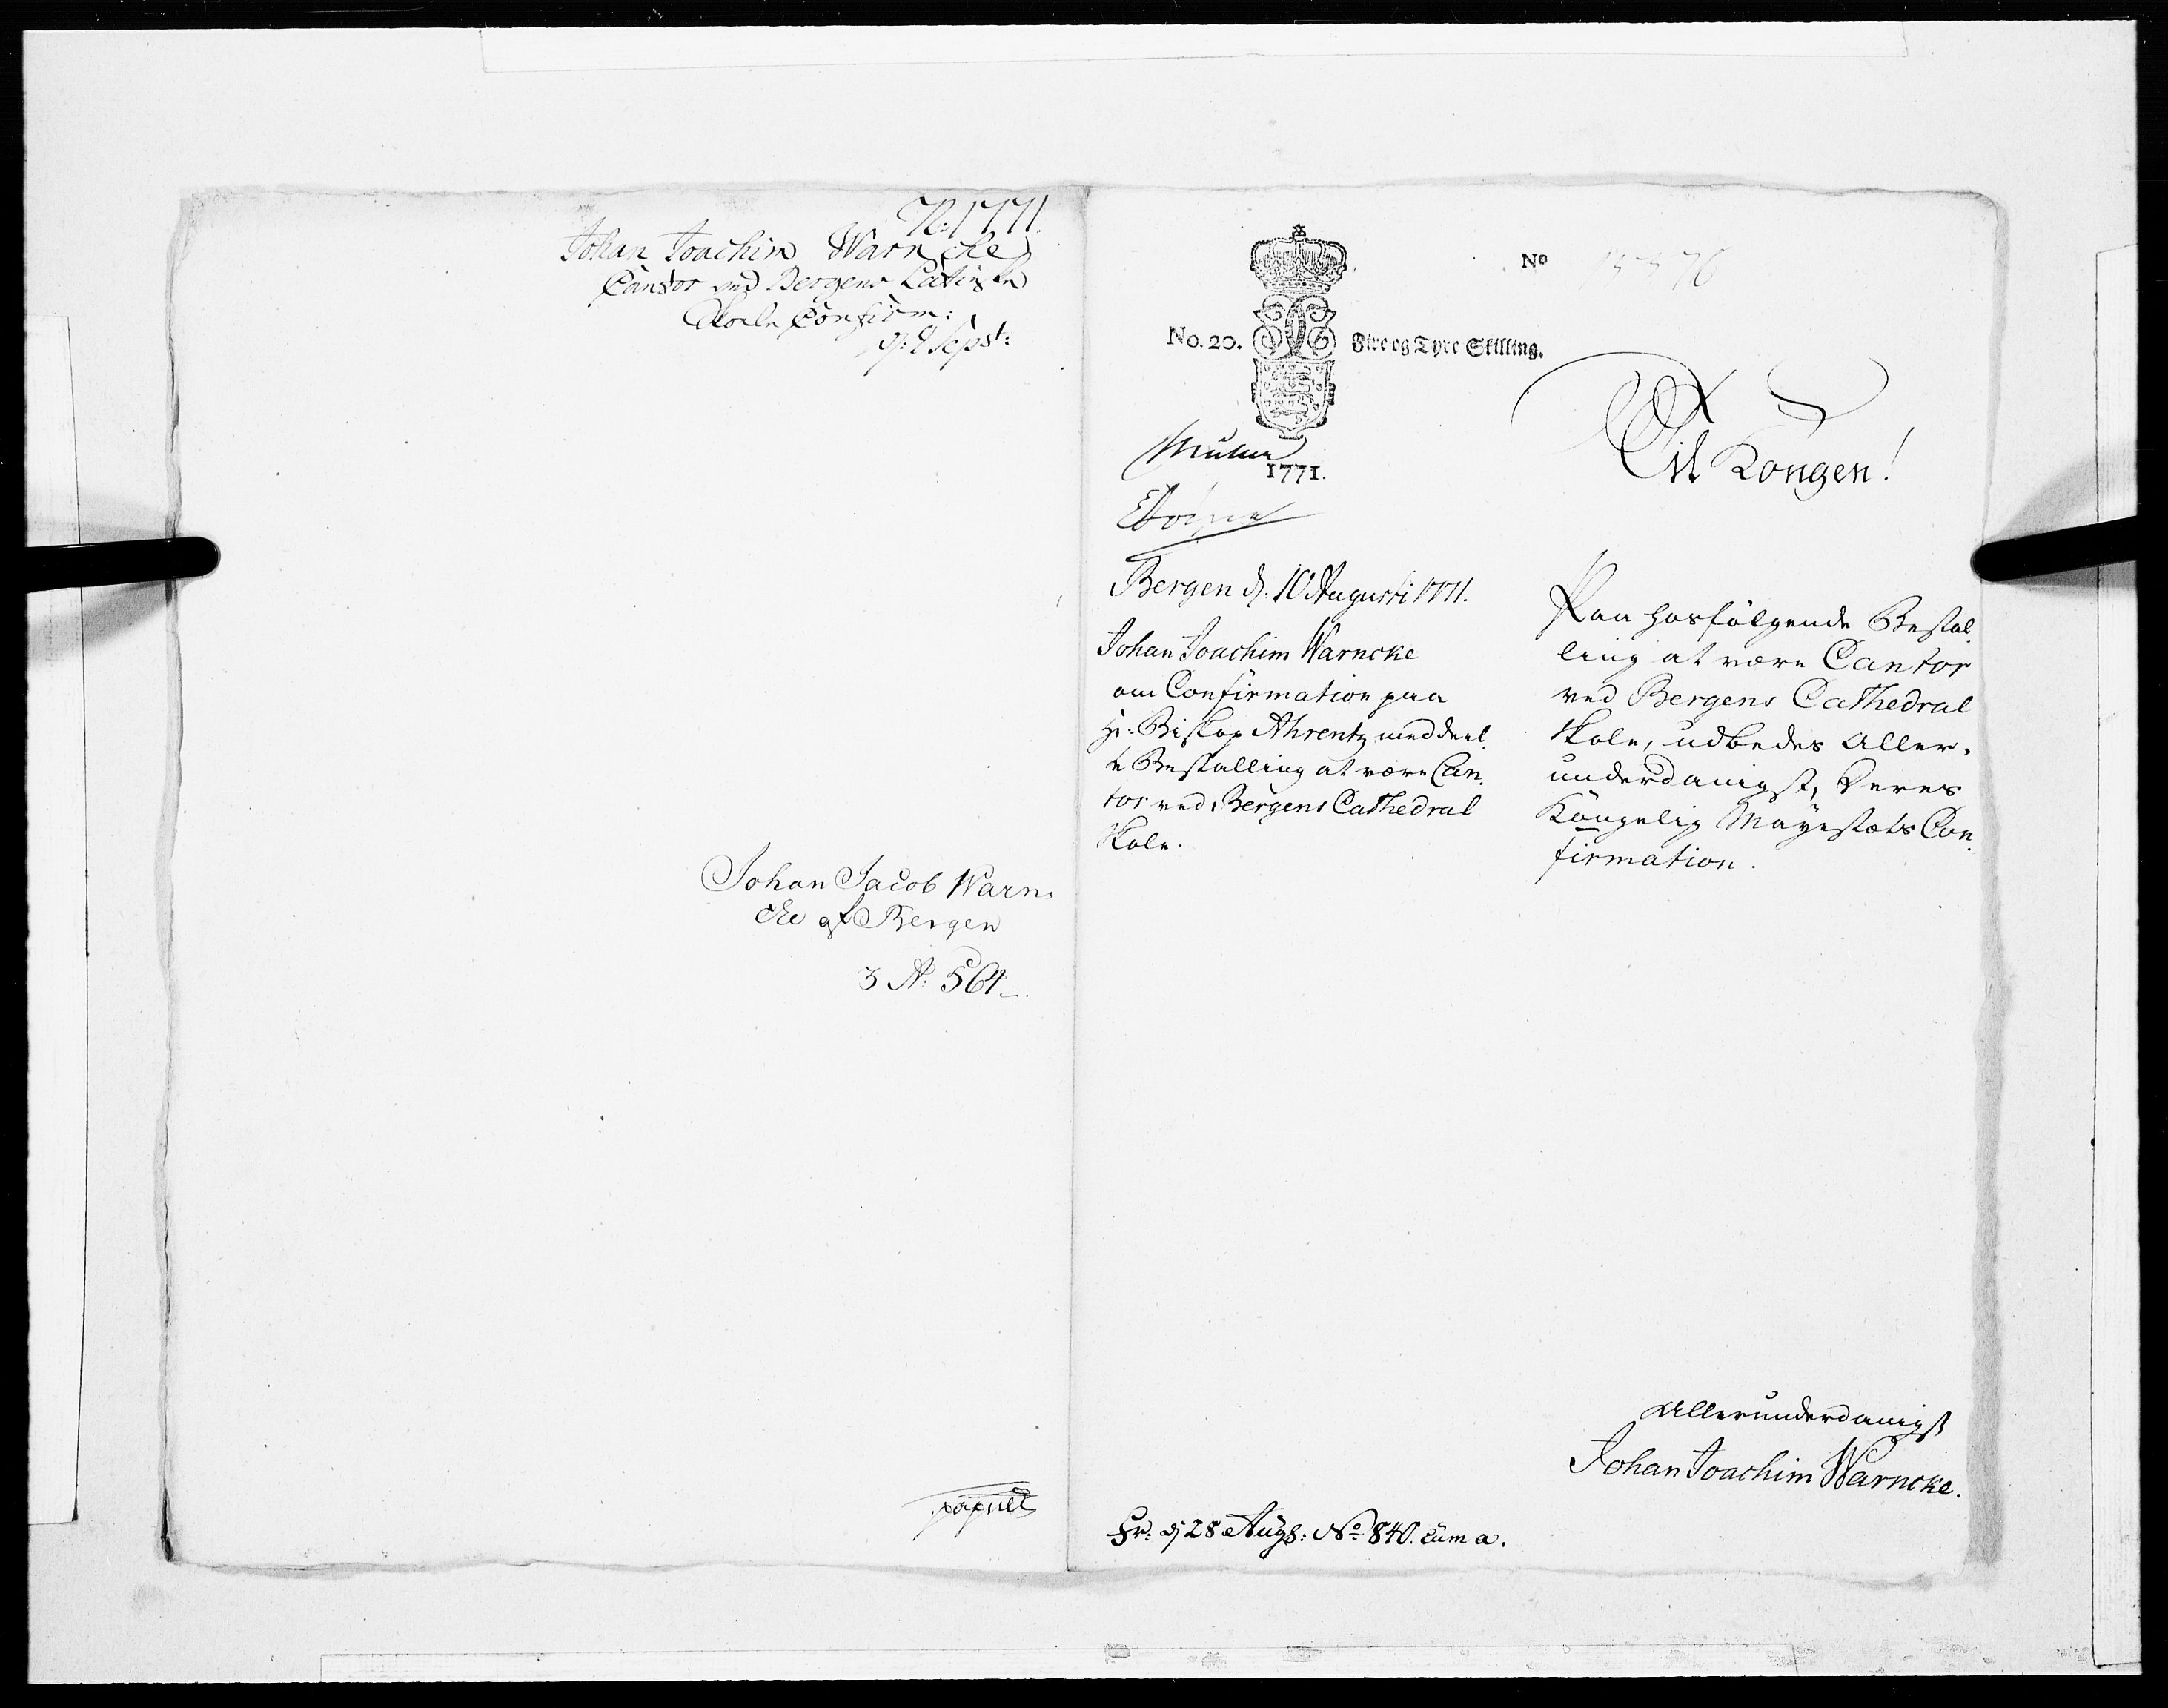 N. 1771.
Johan Joachim Warncke
Cantor ved Bergens Latinske
Skoele Confirm:
d: 9 Sept:
Johan Jacob Warn-
cke af Bergen
3 A: 564
No. 20.
Fire og Tyve Skilling.
1771.
No
Til Kongen!
Bergen d: 10 Augusti 1771.
Johan Joachim Warncke
om Confirmation paa
Hr: Biskop Ahrentz meddeel-
te Bestalling at være Can-
tor ved Bergens Cathedral
Skole.
Paa hosfölgende Bestal-
ling at være Cantor
ved Bergens Cathedral
Skole, udbedes Aller-
underdanigst, Deres
Kongelig Mayestæts Con-
firmation.
Allerunderdanigst
Johan Joachim Warncke.
Fr: d 28 Augs: No 840. cum a.